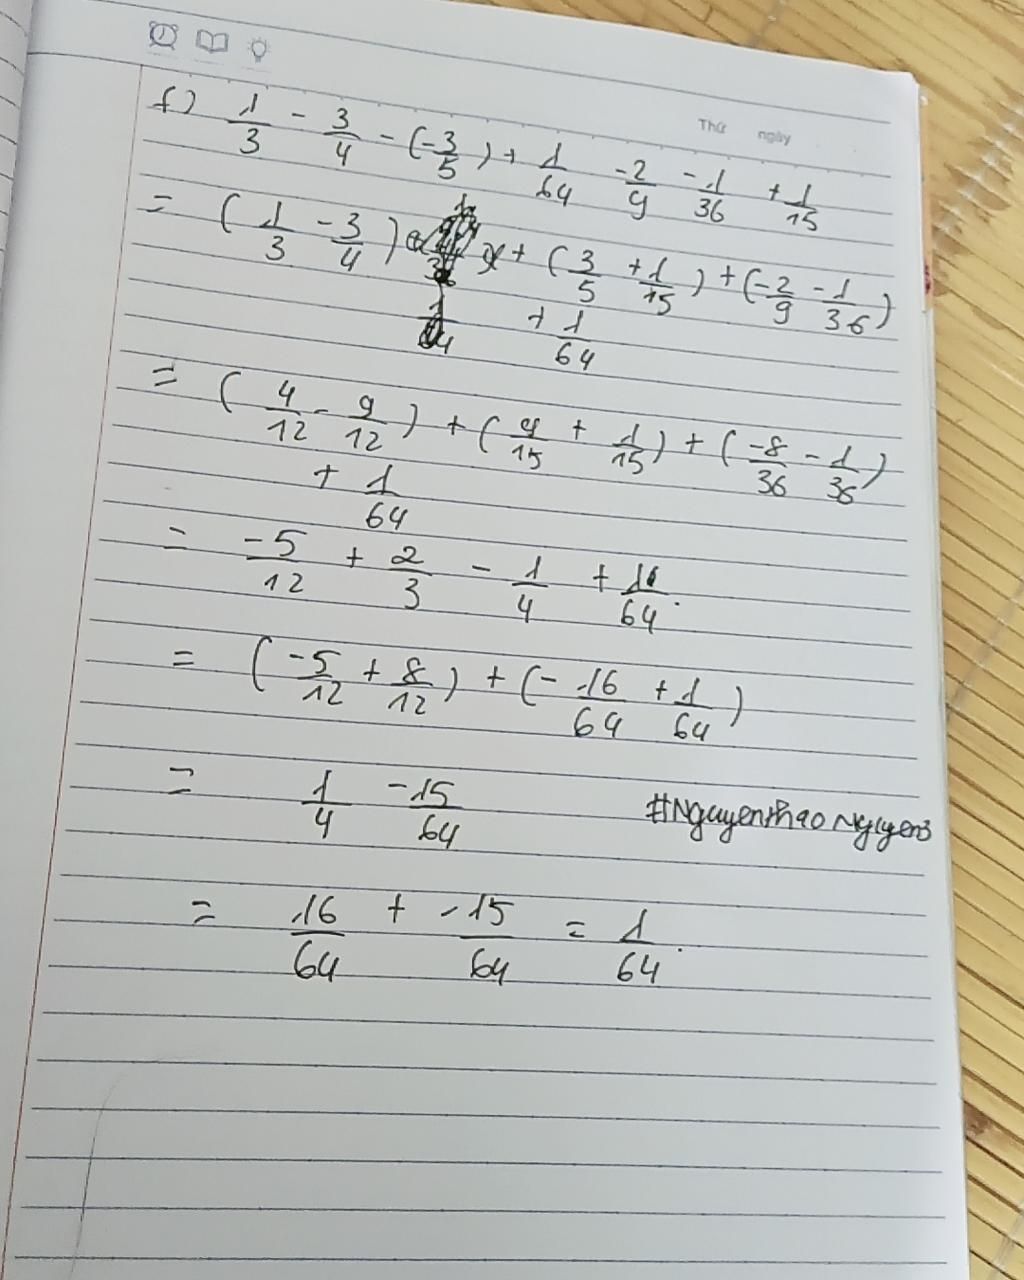 Thứ ngày
f) 1/3 - 3/4 - (-3/5) + 1/64 - 2/9 - 1/36 + 1/15
= (1/3 - 3/4) + (3/5 + 1/15) + (-2/9 - 1/36)
+ 1/64
= (4/12 - 9/12) + (9/15 + 1/15) + (-8/36 - 1/36)
+ 1/64
= -5/12 + 2/3 - 1/4 + 1/64.
= (-5/12 + 8/12) + (-16/64 + 1/64)
= 1/4 -15/64
#Nguyenthaonguyen
= 16/64 + -15/64 = 1/64.